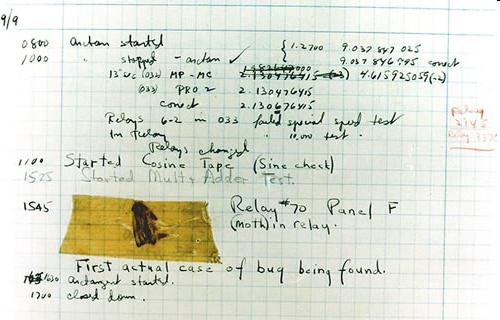 9/9
0800 Antan started { 1.2700 9.037 847 025
1000 " stopped - antan ✓ 9.037 846 995 correct
13"uc (032) MP - MC 2.130476415 4.615925059(-2)
(033) PRO 2 2.130476415
correct 2.130676415
Relays 6-2 in 033 failed special speed test
In Relay " 10,000 test .
Relays changed
1100 Started Cosine Tape (Sine check)
1525 Started Mult + Adder Test.
1545 Relay #70 Panel F
(moth) in relay.
First actual case of bug being found.
1630 antangent started.
1700 closed down.
Relay